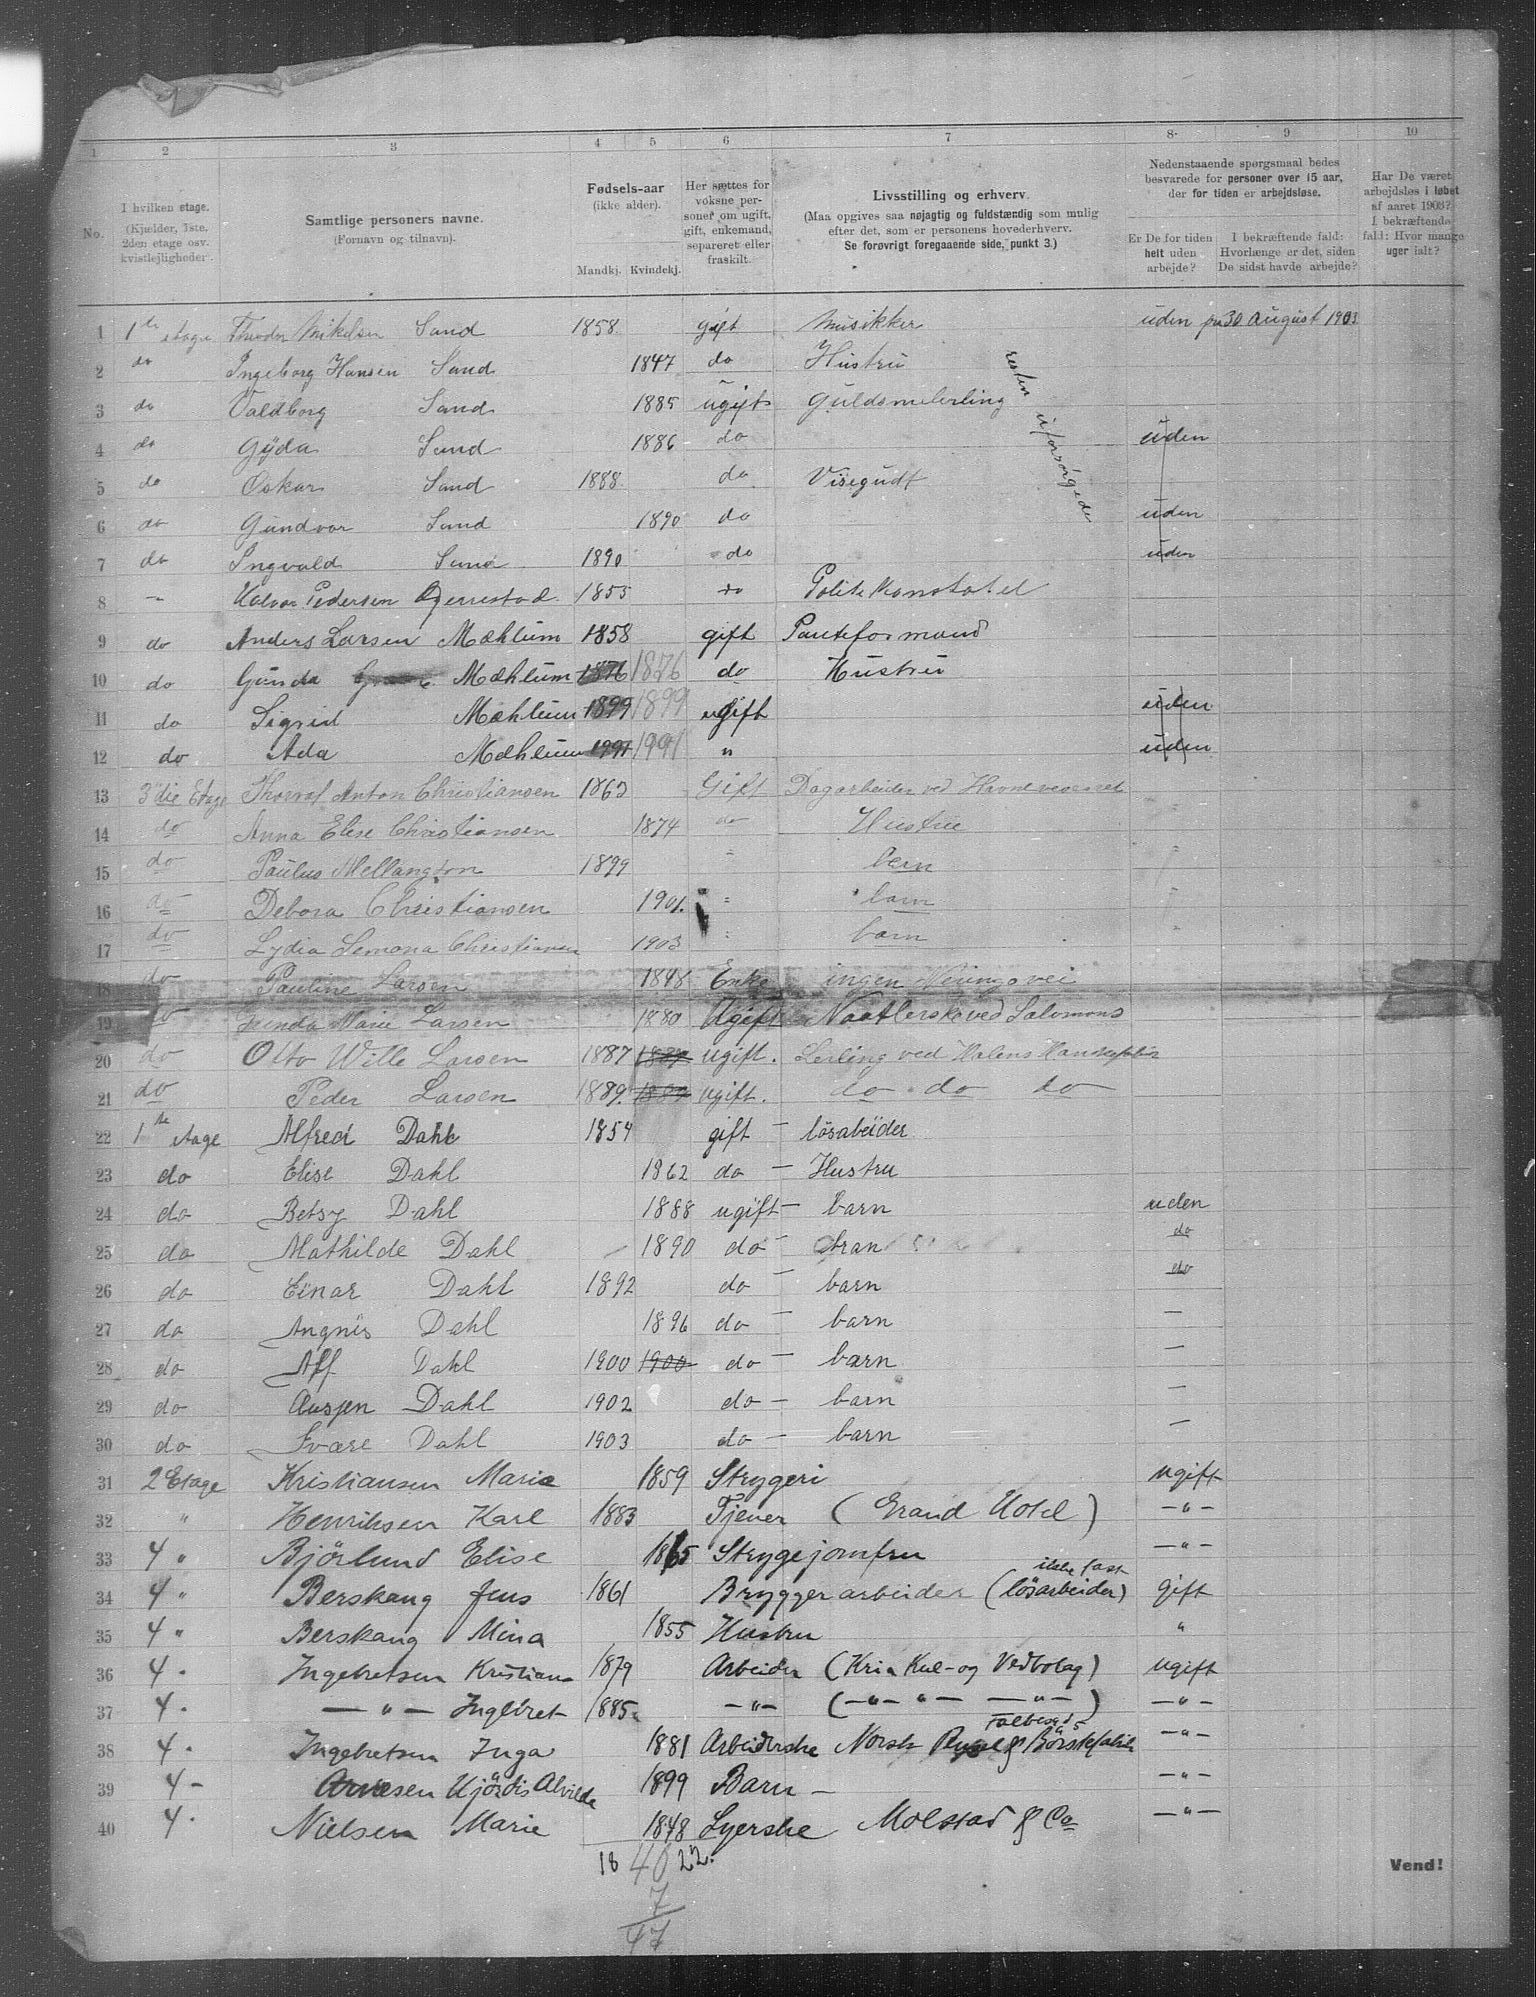 1 2 3 4 5 6 7 8. 9 10
No.
I hvilken etage. (Kjælder, 1ste, 2den etage osv. kvistlejligheder.
Samtlige personers navne. (Fornavn og tilnavn).
Fødsels-aar (ikke alder). Mandkj. Kvindekj.
Her sættes for voksne personer om ugift, gift, enkemand, separeret eller fraskilt.
Livsstilling og erhverv. (Maa opgives saa nøjagtig og fuldstændig som mulig efter det, som er personens hovederhverv. Se forøvrigt foregaaende side, punkt 3.)
Nedenstaaende spørgsmaal bedes besvarede for personer over 15 aar, der for tiden er arbejdsløse.
Er De for tiden helt uden arbejde?
I bekræftende fald: Hvorlænge er det, siden De sidst havde arbejde?
Har De været arbejdsløs i løbet af aaret 1903? I bekræftende fald: Hvor mange uger ialt?
1 1ste etage Theodor Mikelsen Sand 1858 gift Musikker uden 30 august 1903
2 do Ingeborg Hansen Sand 1847 do Hustru
3 do Valdborg Sand 1885 ugift Guldsmelerling
resten uforsørgede
4 do Gÿda Sand 1886 do uden
5 do Oskar Sand 1888 do Visegudt
6 do Gundvor Sand 1890 do uden
7 do Ingvald Sand 1890 do uden
8 " Halvor Pedersen Gjerrestad 1855 do Politikonstabel
9 do Anders Larsen Mæhlum 1858 gift Panteformand
10 do Gunda Mæhlum 1876 1876 do Hustru
11 do Sigrid Mæhlum 1899 1899 ugift uden
12 do Ada Mæhlum 1991 1991 " uden
13 3die Etage Thorval Anton Christiansen 1863 Gift Dagarbeider ved Havnevesenet
14 do Anna Elise Christiansen 1874 do Hustru
15 do Paulus Mellangton 1899 " barn
16 do Debora Christiansen 1901. " barn
17 do Lydia Semona Christiansen 1903 " barn
18 do Pauline Larsen 1848 Enke ingen Neringsvei
19 do Marie Larsen 1880 Ugift Naatlerske ved Salomons
20 do Otto Wille Larsen 1887 1887 ugift. Lerling ved Halens Hanskefabrik
21 do Peder Larsen 1889. 1889 ugift. do do do
22 1ste etage Alfred Dahl 1854 gift - lösabeider
23 do Elise Dahl 1862 do - Hustru
24 do Betsy Dahl 1888 ugift - barn uden
25 do Mathilde Dahl 1890 do - do
26 do Einar Dahl 1892 do - barn do
27 do Angnis Dahl 1896 do - barn —
28 do Alf Dahl 1900 1900 do - barn —
29 do Ausjen Dahl 1902 do - barn —
30 do Ivare Dahl 1903 do - barn —
31 2 Etage Kristiansen Marie 1859 Strygeri ugift
32 " Henriksen Karl 1883 Tjener (Grand Hotel) -"-
33 4 " Björlund Elise 1865 Strygejomfru -"-
34 4 " Berskaug Jens 1861 Bryggerarbeider (ikke fast lösarbeider) gift
35 4 " Berskaug Mina 1855 Hustru "
36 4 " Ingebretsen Kristian 1879 Arbeider (Kria Kul- og Vedbolag) ugift
37 4 " —"— Ingebret 1885 -"- (-"- "- -"-) -"-
38 4 " Ingebretsen Inga 1881 Arbeiderske Norsk & Börstefabrik -"-
39 4 - Arvesen Hjördis Alvilde 1899 Barn - -"-
40 4 " Nielsen Marie 1848 Syerske Molstad & Co -"-
18 40 22.
7
47
Vend!